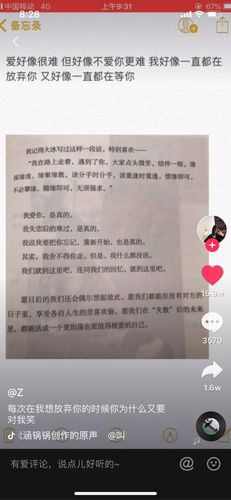 中国移动 4G
上午9:31
8:28
备忘录
爱好像很难 但好像不爱你更难 我好像一直都在
放弃你 又好像一直都在等你
我记得大冰写过这样一段话，特别喜欢——
“我在路上走着，遇到了你，大家点头微笑，结伴一程。缘
深缘浅，缘聚缘散，该分手时分手，该重逢时重逢，惜缘即可，
不必攀缘，随缘即可，无须强求。”
我爱你，是真的。
我失恋后的难过，是真的。
我说我要把你忘记，重新开始，也是真的。
其实，我舍不得你走，但是，我什么都没说。
我们就到这里吧，连同我们的回忆，就到这里吧。
愿日后的我们还会偶尔想起彼此，愿我们都能在没有对方的
日子里，享受各人人生的悲喜欢愉，愿我们在“失散”后的未来
里，都能活成一个更坦荡也更值得被爱的自己。
15.9w
3570
1.6w
@Z
每次在我想放弃你的时候你为什么又要
对我笑
涵锅锅创作的原声
@叫
有爱评论，说点儿好听的~